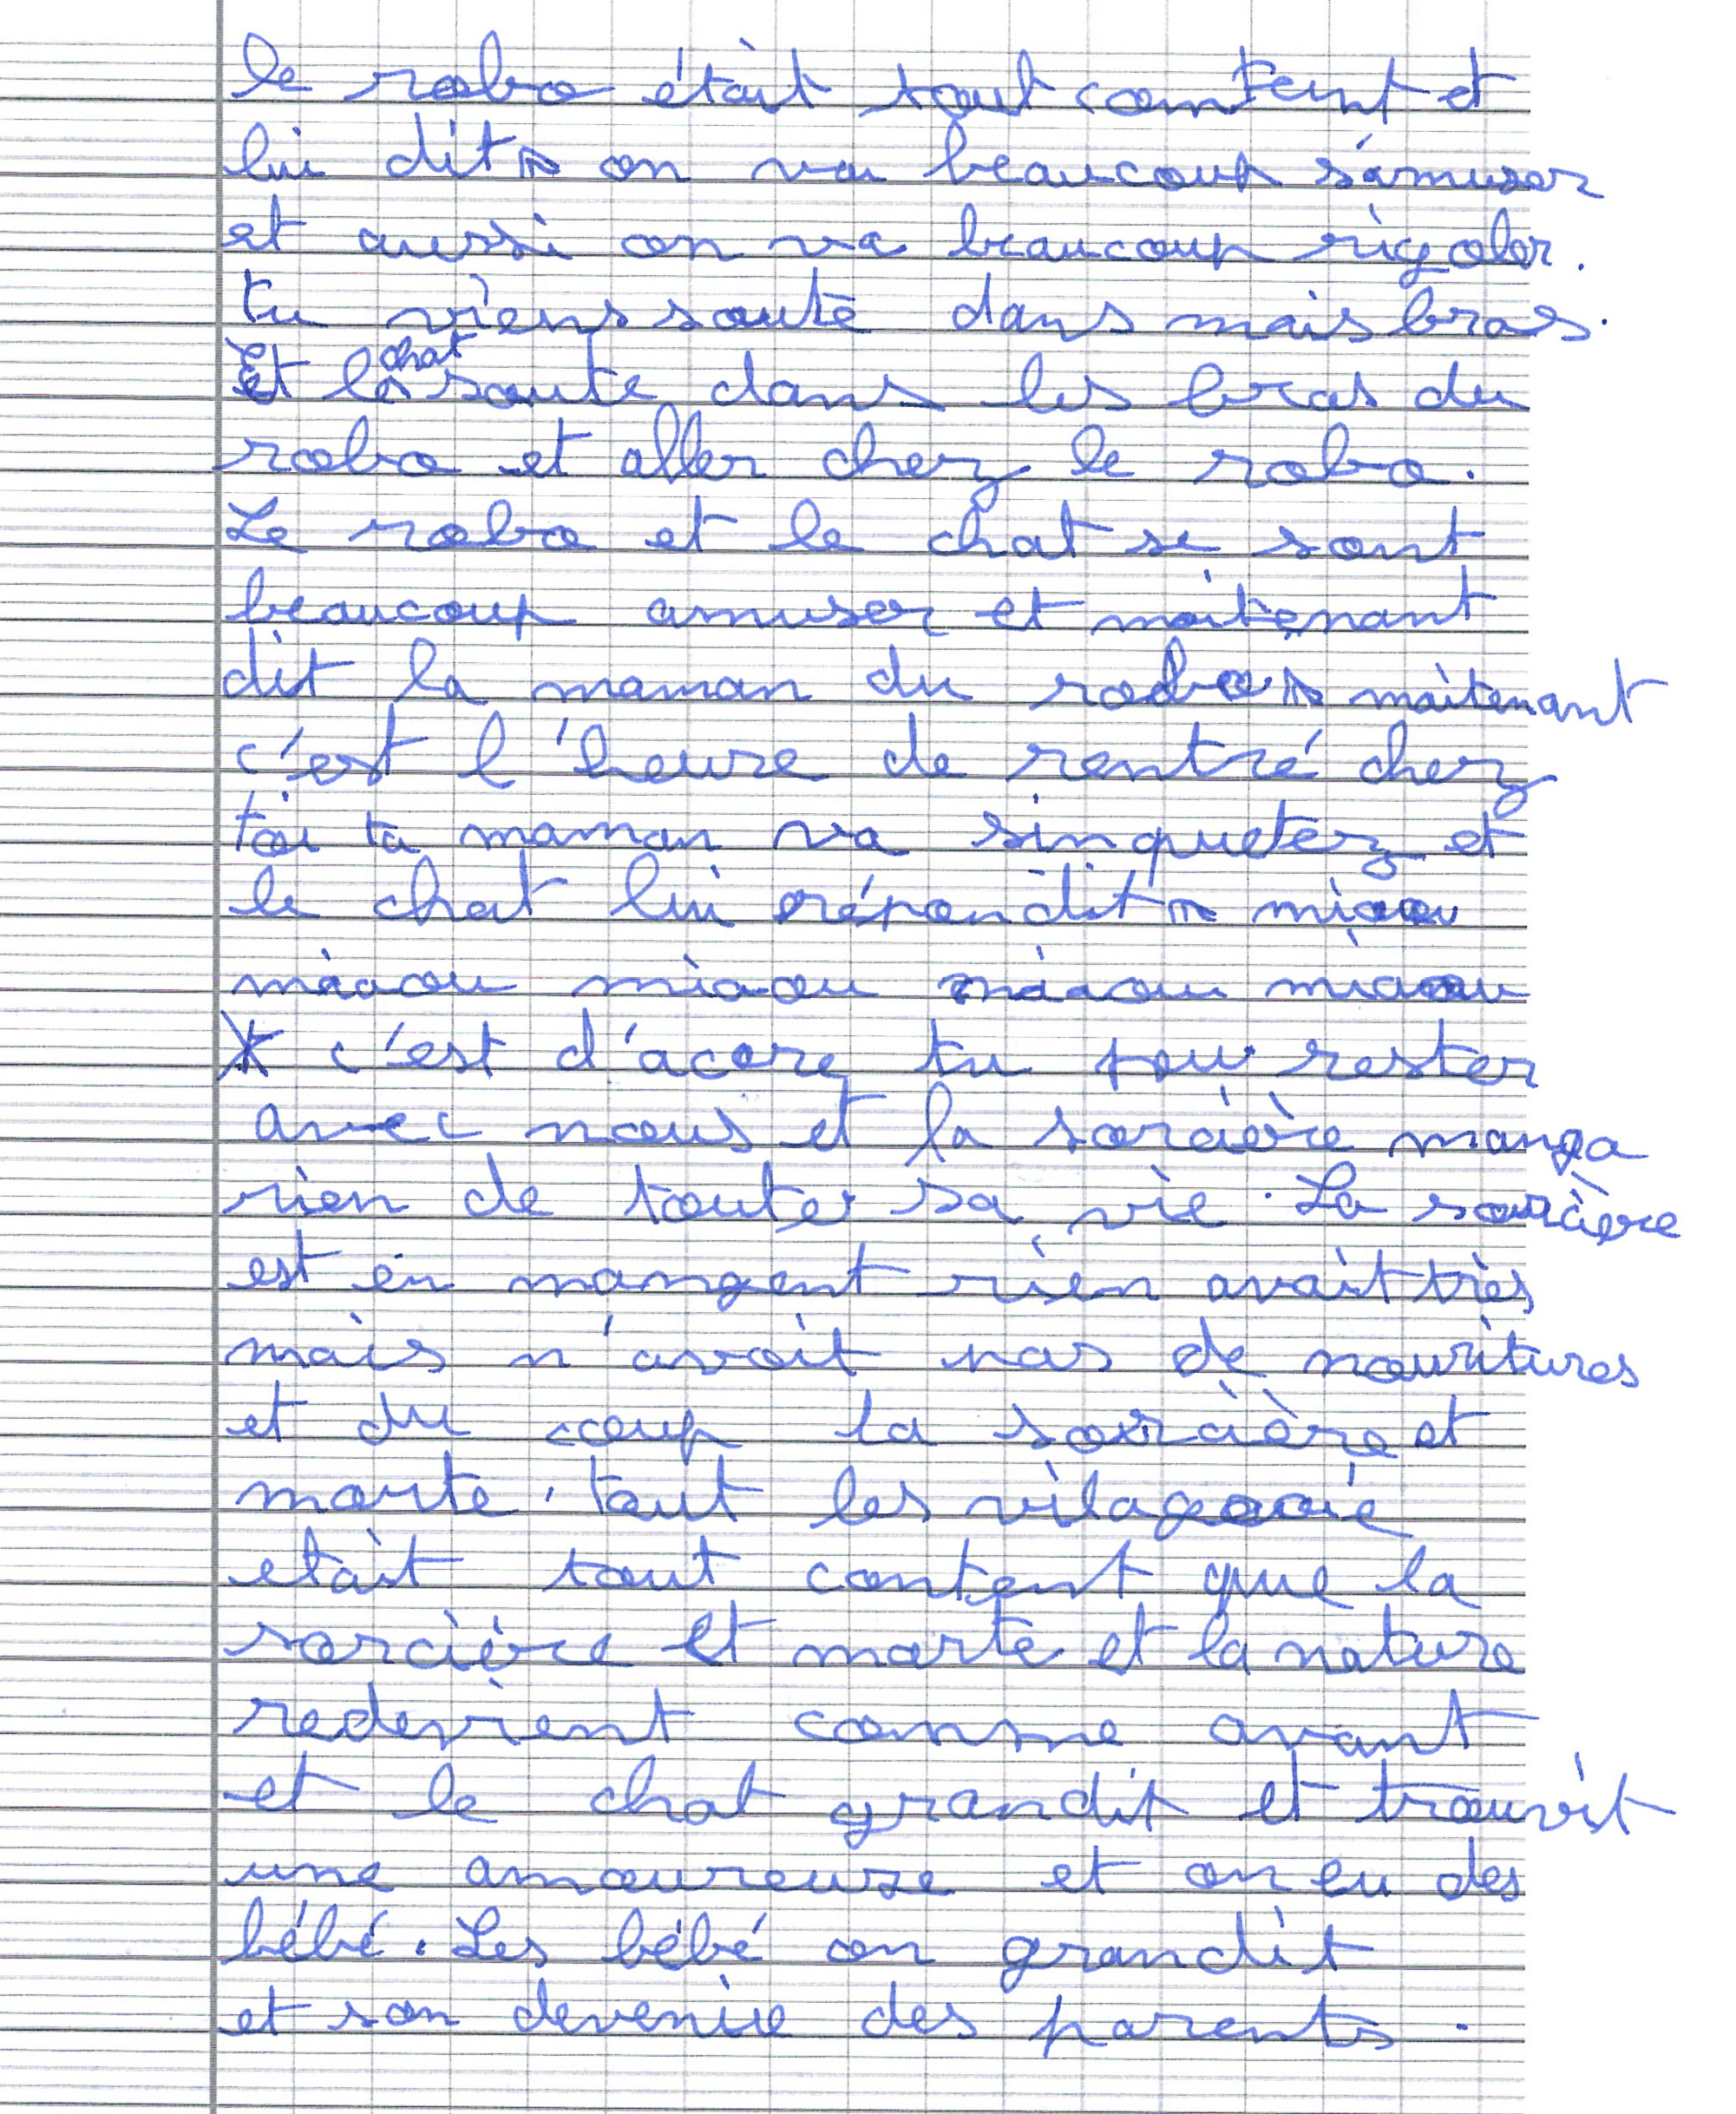 le robo était tout conteint et
lui dit on va beaucoup s'amuser
et aussi on va beaucoup rigoler.
tu viens sauté dans mais bras.
Et le chat saute dans les bras du
robo et aller chez le robo.
Le robo et le chat se sont
beaucoup amuser et maitenant
dit la maman du robo maitenant
c'est l'heure de rentré chez
toi ta maman va sinquetez et
le chat lui répondit miaou
miaou miaou miaou miaou
c'est d'acore tu peu rester
avec nous et la sorcière manga
rien de toute sa vie. La sorcière
est en mangent rien avait très
mais n'avait pas de nouritures
et du coup la sorcière et
morte. tout les
etait tout content que la
sorcière et morte et la nature
redevient comme avant
et le chat grandit et trouvit
une amoureuse et on eu des
bébé. Les bébé on grandit
et son devenue des parents.